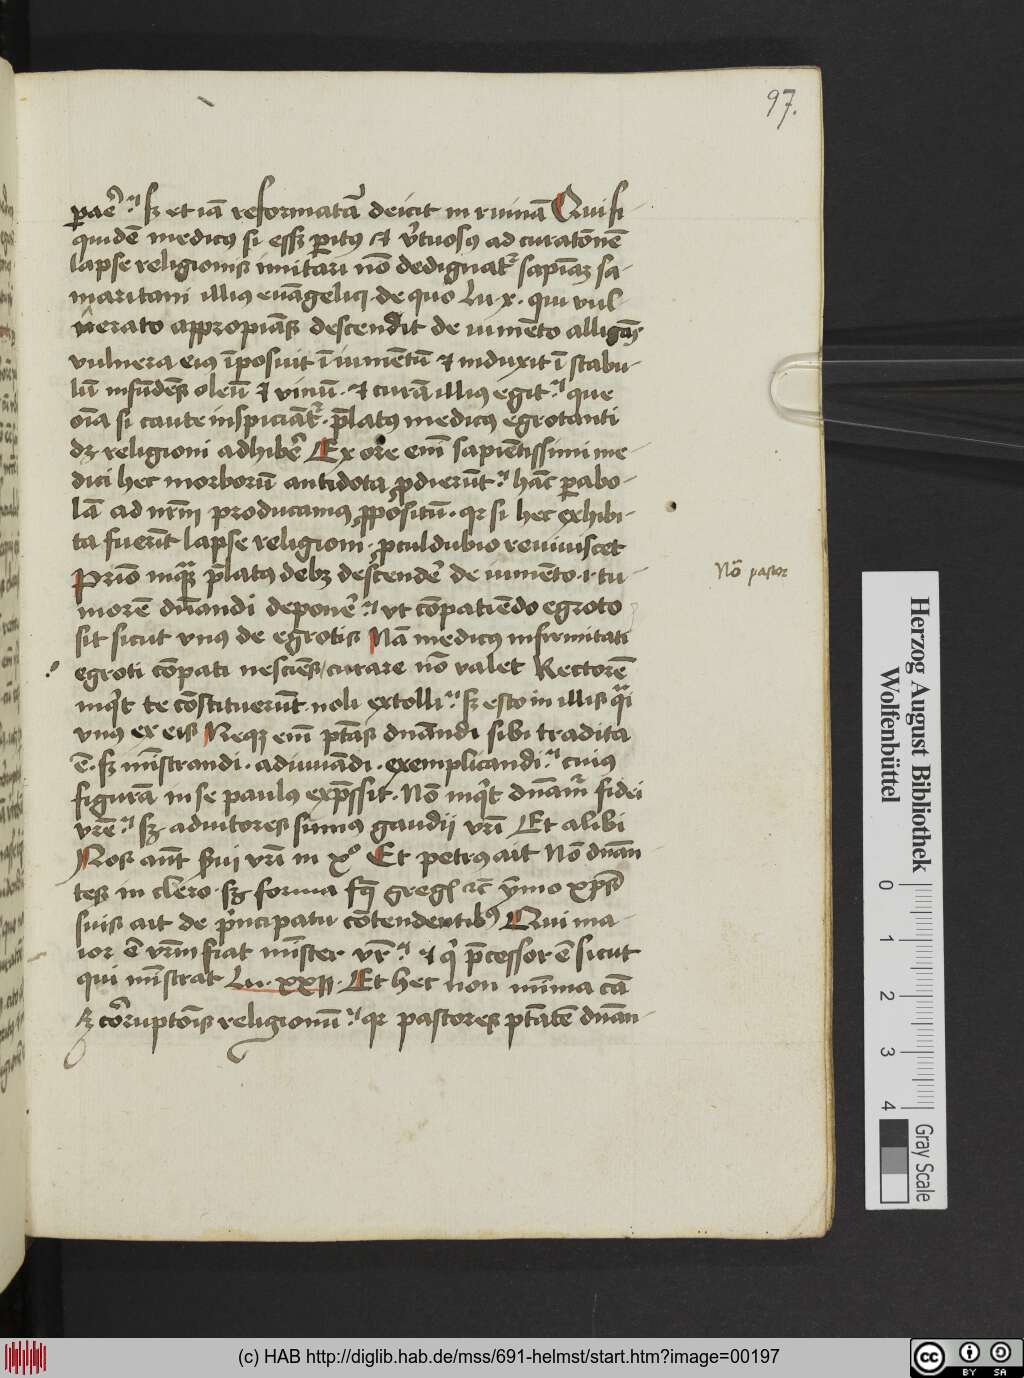 97.
parẽ ʼ sꝫ et iã reformatã deicit in ruinã Qui si-
quidẽ medicꝯ si esſꝫ ꝑitꝯ ⁊ v̾tuosꝯ ad curatõnẽ
lapse religionis imitari nõ dedignat᷑ sapiãꝫ sa-
maritani illius euãgelici de quo Lu x. qui vul-
nerato appropiãs descendit de iumẽto alligãs
vulnera eiꝯ ĩposuit ĩ iumẽtũ ⁊ induxit ĩ stabu-
lũ infũdẽs oleũ ⁊ vinũ. ⁊ curã illius egit. que
oĩa si caute inspiciãt᷑. p̃latꝯ medicꝯ egrotanti
dꝫ religioni adhibe᷑ Ex ore em̃ sapiẽtissimi me-
dici hec morborũ antidota ꝓdierũt. hãc ꝑabo-
lã ad nr̃m producamꝯ ꝓpositũ. qr si hec exhibi-
ta fuerĩt lapse religioni. ꝓculdubio reuiuiscet
Prĩo inquã p̃latꝯ debꝫ descende᷑ de iumẽto .i. tu-
Nõ pastor
morẽ dñandi depone᷑. vt cõpatiẽdo egroto
sit sicut vnꝯ de egrotis Nã medicꝯ infirmitati
egroti cõpati nesciẽs / curare nõ valet Rectorẽ
inq̃t te cõstituerũt noli extolli. sꝫ esto in illis q̃i
vnꝯ ex eis Neqꝫ em̃ ptãs dñandi sibi tradita
ẽ. sꝫ mĩstrandi. adiuuãdi. exemplicandi. cuius
figurã in se paulꝯ exp̃ssit. Nõ inq̃t dñam᷑ fidei
vr̃e. sꝫ adiutores sumꝯ gaudij vr̃i Et alibi
Nos aũt ẜui vr̃i in xº Et petrꝯ ait Nõ dñan-
tes in clero. sꝫ forma fc̃ gregꝭ ⁊c̃ ỹmo xp̃s
suis ait de p̃ncipatu cõtendentibꝯ Qui ma-
ior ẽ vr̃m fiat mĩster vr̃. ⁊ q̃ p̃cessor ẽ sicut
qui mĩstrat Lu. xxij. Et hec non minima cã
ẜ corruptõis religionũ. qr pastores ptãtẽ dñan-
Herzog August Bibliothek
Wolfenbüttel
0 1 2 3 4
Gray Scale
(c) HAB http://diglib.hab.de/mss/691-helmst/start.htm?image=00197
cc BY SA